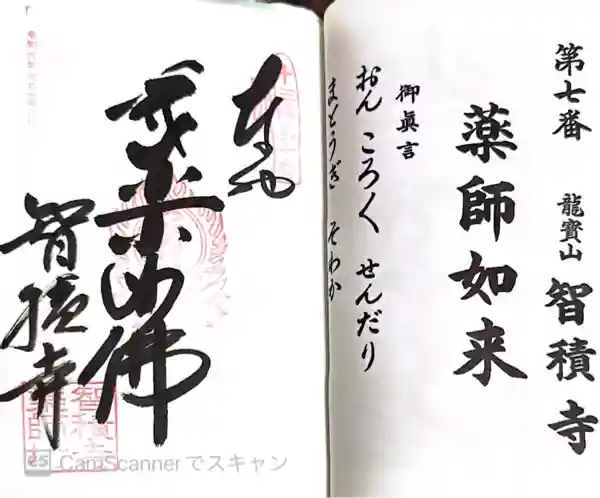 第七番 龍寳山 智積寺
薬師如来
御眞言
おん ころく せんだり
まとうぎ そわか
奉拝
薬師佛
智積寺
CS CamScannerでスキャン